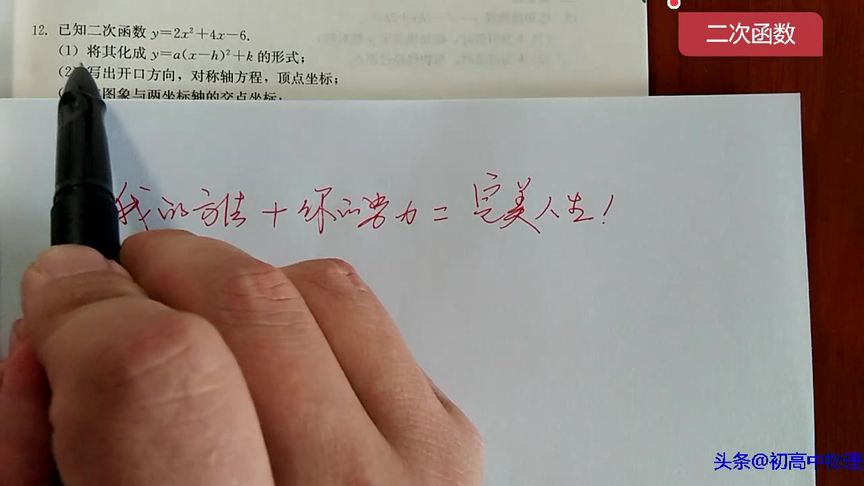 二次函数
12. 已知二次函数 y=2x²+4x-6.
(1) 将其化成 y=a(x-h)²+k 的形式;
(2) 写出开口方向,对称轴方程,顶点坐标;
图象与两坐标轴的交点坐标;
我的方法+你的努力=完美人生!
头条@初高中物理